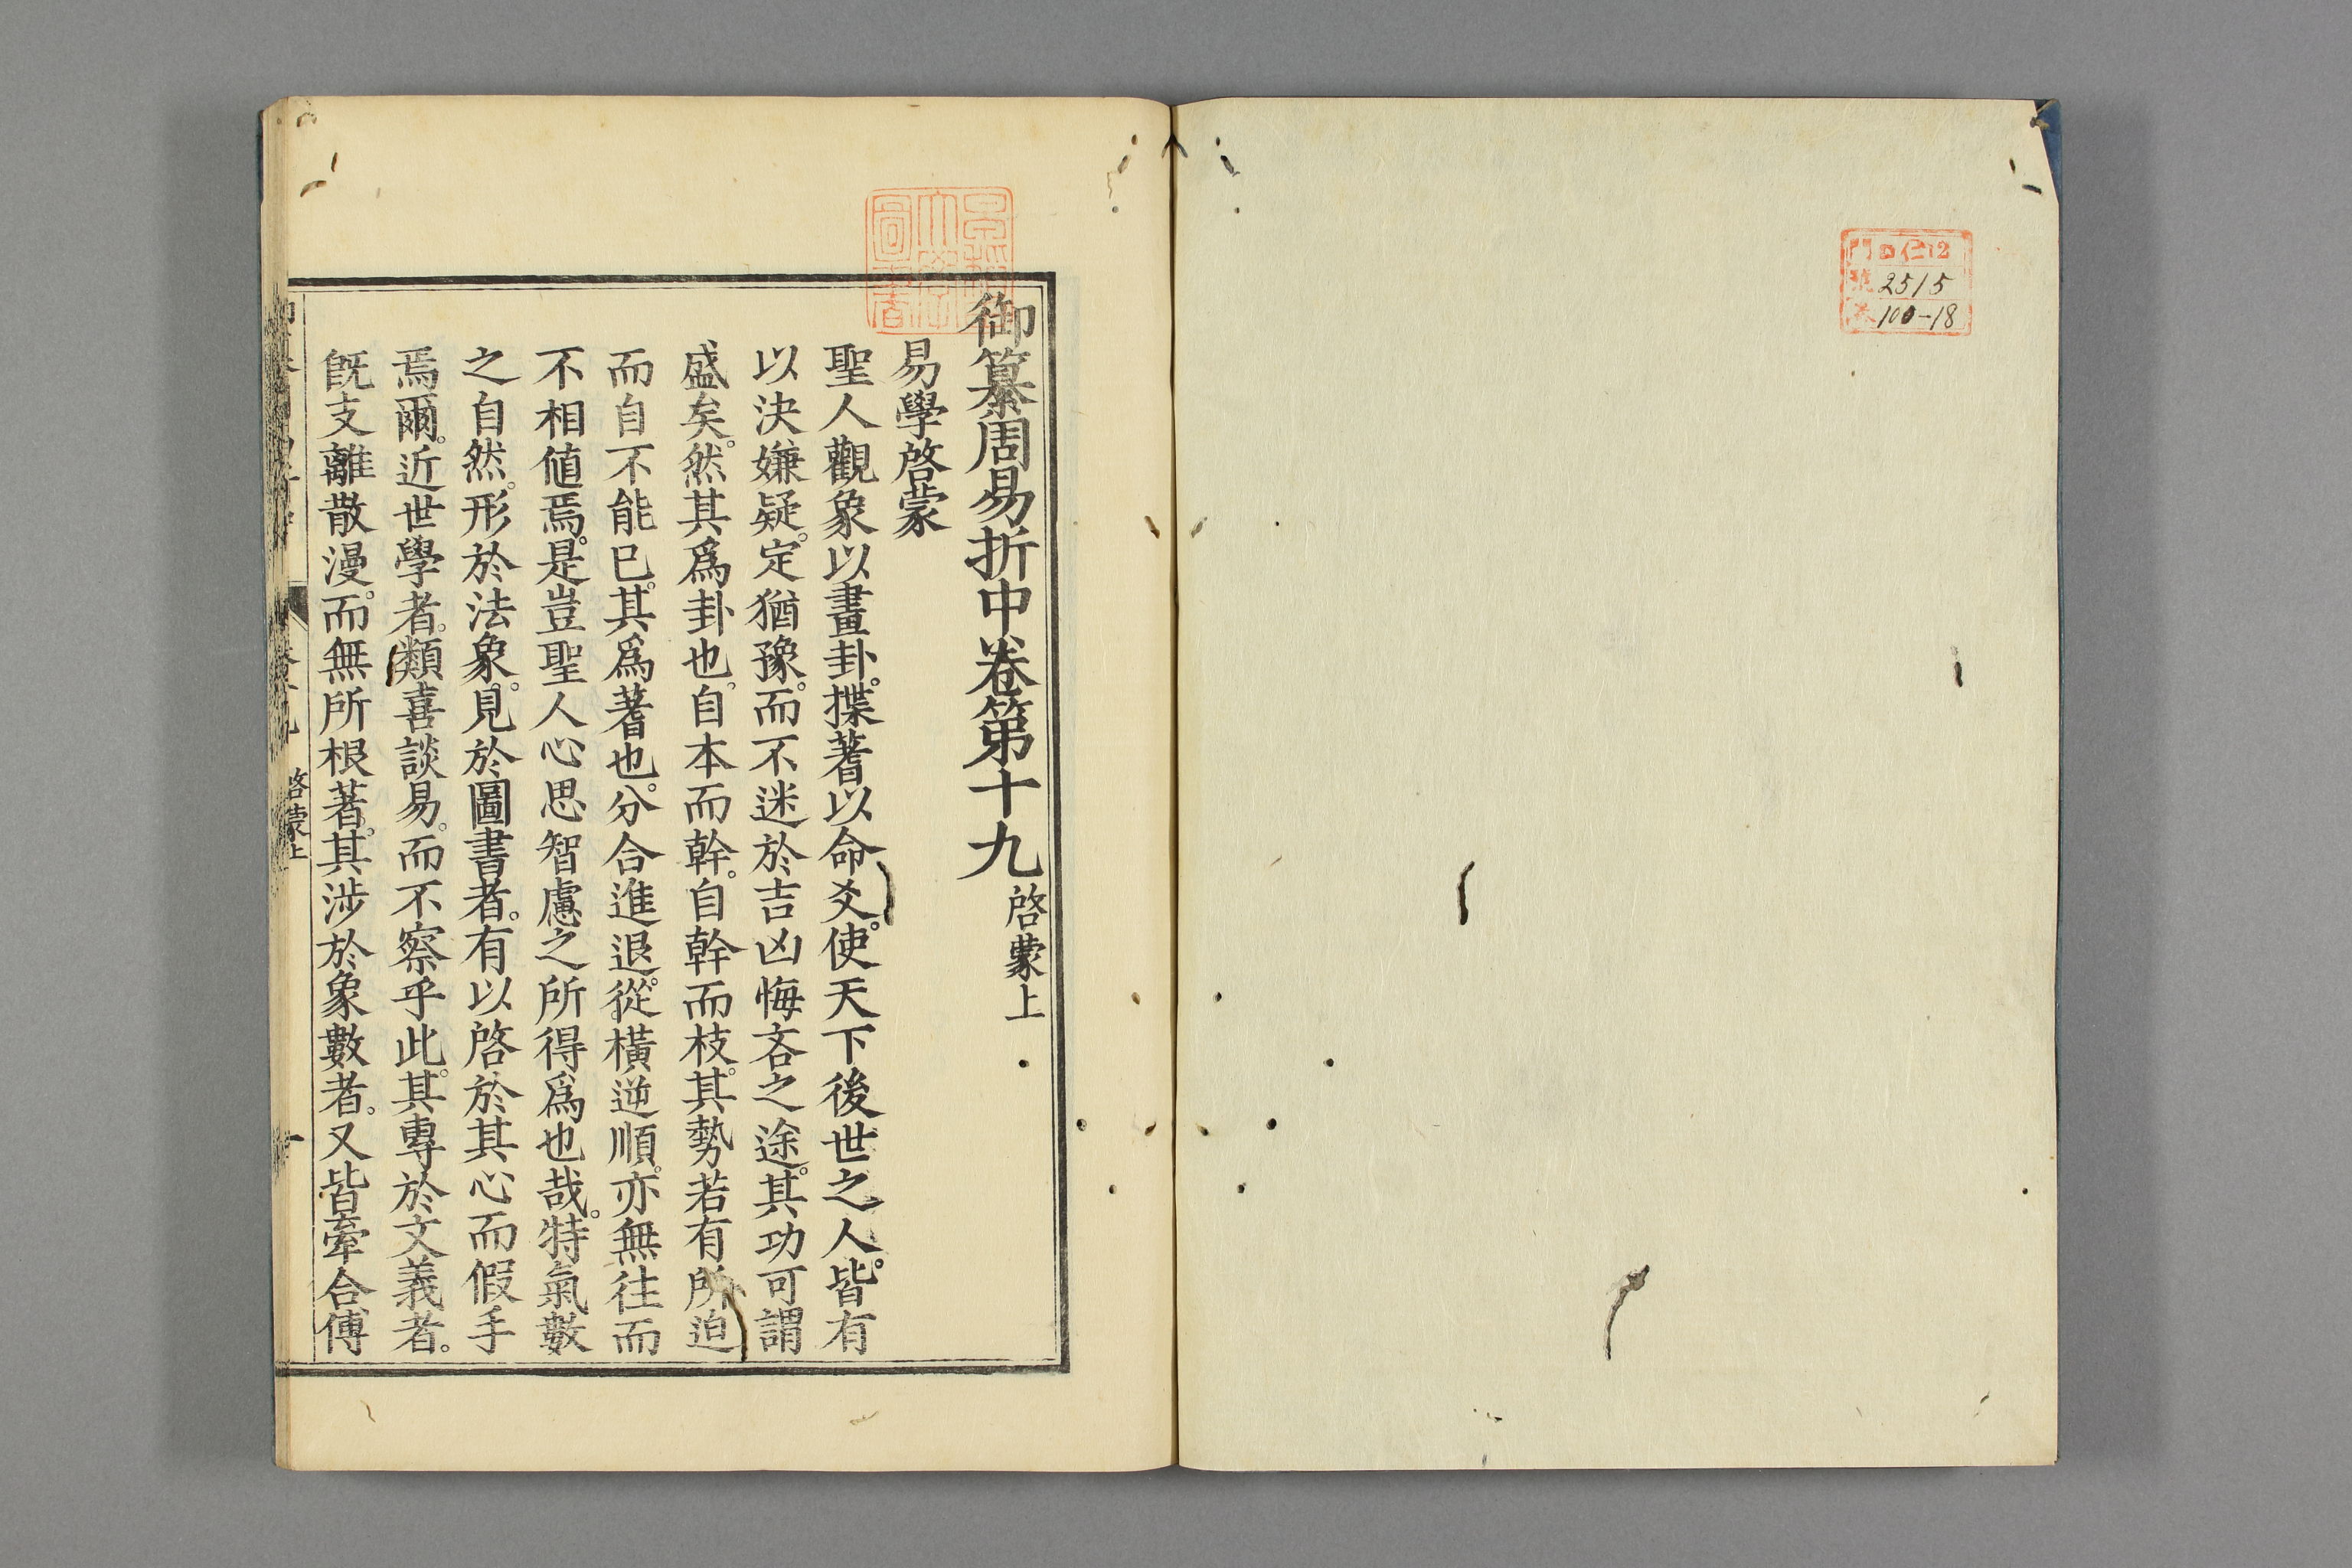 門 ロ仁12
號 2515
卷 100-18
御纂周易折中卷第十九 啓蒙上
易學啓蒙
聖人觀象以畫卦。揲蓍以命爻。使天下後世之人。皆有
以決嫌疑。定猶豫。而不迷於吉凶悔吝之途。其功可謂
盛矣。然其爲卦也。自本而幹。自幹而枝。其勢若有所迫
而自不能已。其爲蓍也。分合進退。從橫逆順。亦無往而
不相値焉。是豈聖人心思智慮之所得爲也哉。特氣數
之自然。形於法象。見於圖書者。有以啓於其心而假手
焉爾。近世學者。類喜談易。而不察乎此。其專於文義者。
旣支離散漫。而無所根著。其涉於象數者。又皆牽合傅
啓蒙上